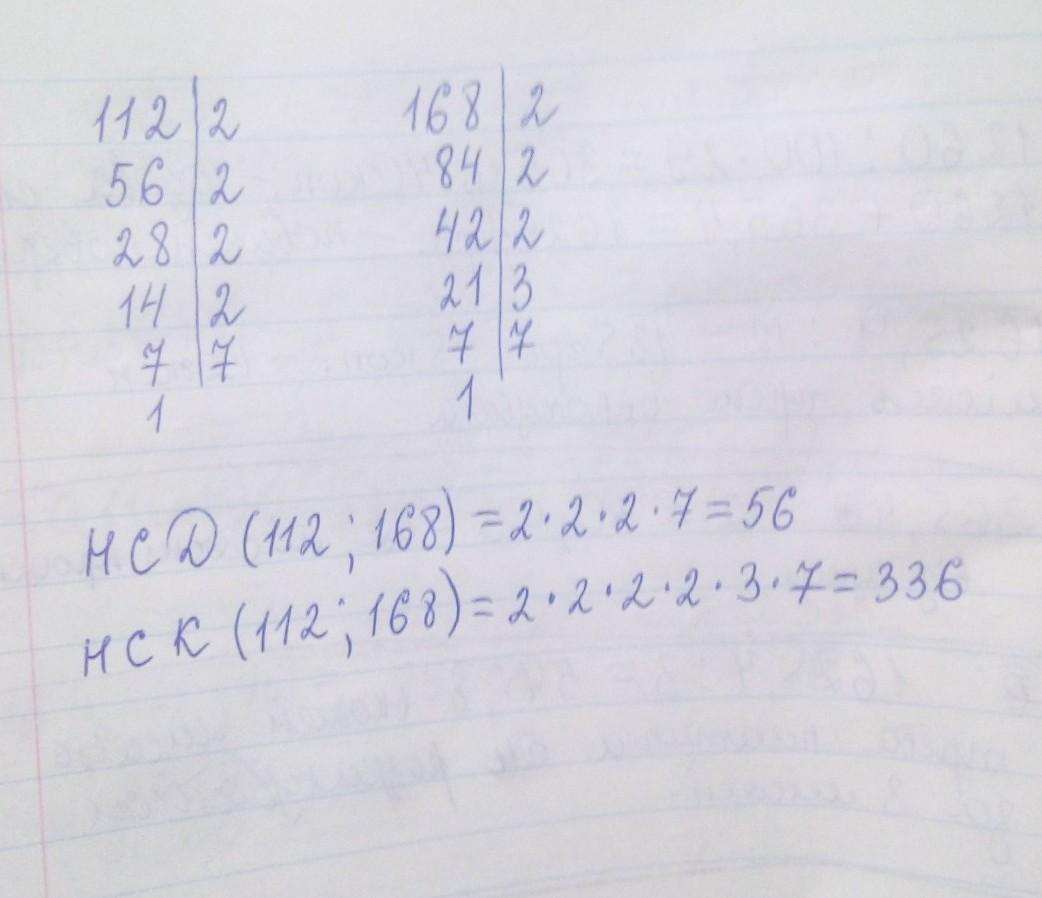 112 | 2 168 | 2
56 | 2 84 | 2
28 | 2 42 | 2
14 | 2 21 | 3
7 | 7 7 | 7
1 1
НСД (112 ; 168) = 2 · 2 · 2 · 7 = 56
НСК (112 ; 168) = 2 · 2 · 2 · 2 · 3 · 7 = 336